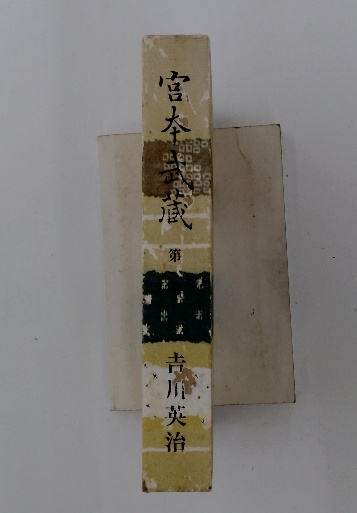 宮本武蔵
第
吉川英治